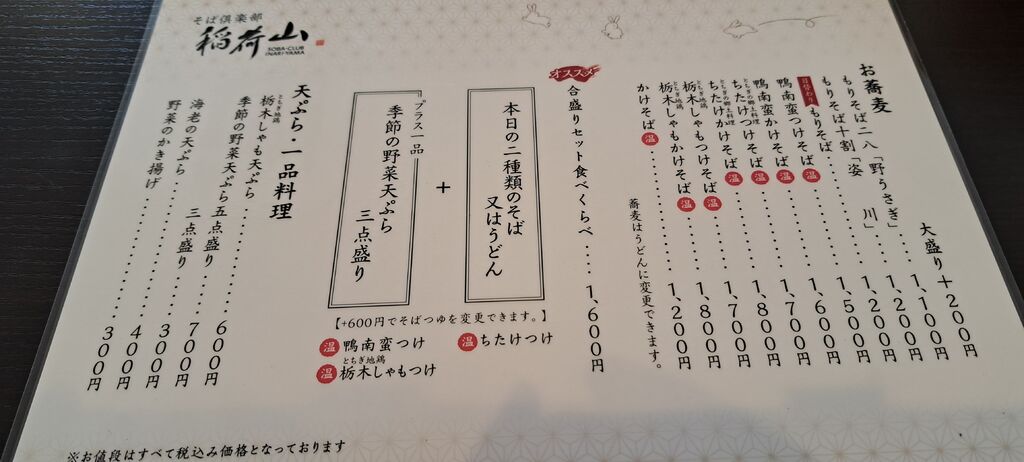 そば倶楽部
稲荷山
SOBA-CLUB
INARI-YAMA
お蕎麦
大盛り+200円
もりそば二八「野うさぎ」‥‥1,100円
もりそば十割「姿 川」‥‥1,200円
日替わり もりそば‥‥1,200円
鴨南蛮つけそば 温‥‥1,500円
鴨南蛮かけそば 温‥‥1,600円
とちぎの郷土料理
ちたけつけそば 温‥‥1,700円
とちぎの郷土料理
ちたけかけそば 温‥‥1,800円
とちぎ地鶏
栃木しゃもつけそば 温‥‥1,700円
とちぎ地鶏
栃木しゃもかけそば 温‥‥1,800円
かけそば 温‥‥1,200円
蕎麦はうどんに変更できます。
オススメ
合盛りセット食べくらべ‥‥1,600円
本日の二種類のそば
又はうどん
+
プラス一品
季節の野菜天ぷら
三点盛り
【+600円でそばつゆを変更できます。】
温 鴨南蛮つけ
温 ちたけつけ
とちぎ地鶏
温 栃木しゃもつけ
天ぷら・一品料理
とちぎ地鶏
栃木しゃも天ぷら‥‥600円
季節の野菜天ぷら五点盛り‥‥700円
三点盛り‥‥300円
海老の天ぷら‥‥400円
野菜のかき揚げ‥‥300円
※お値段はすべて税込み価格となっております